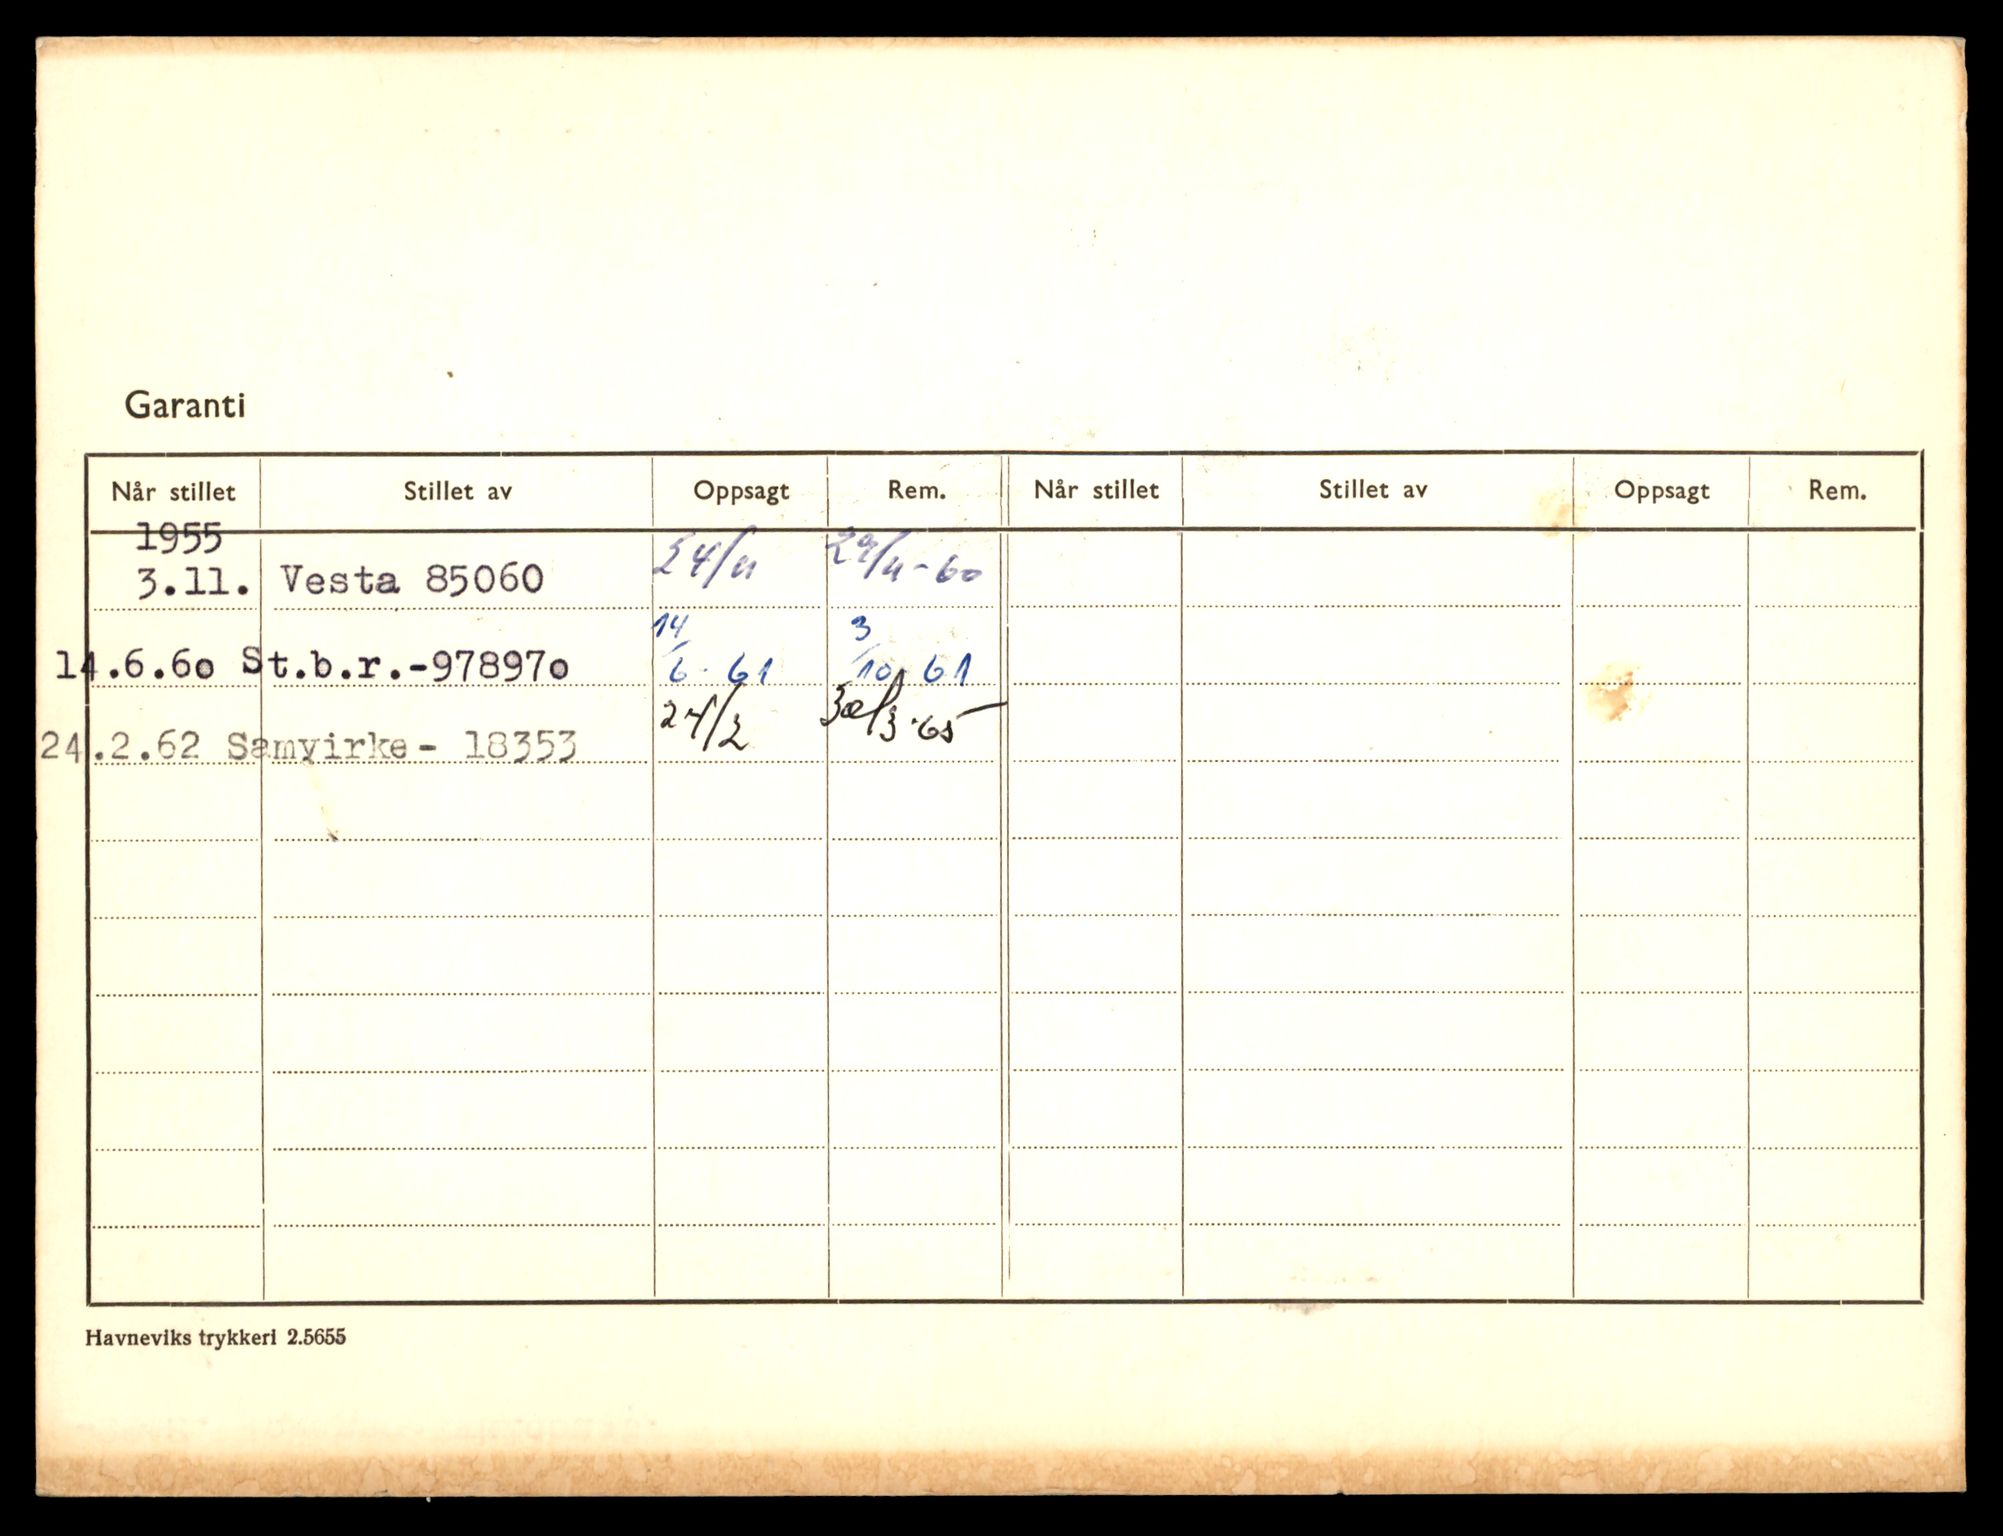 Garanti
Når stillet Stillet av Oppsagt Rem. Når stillet Stillet av Oppsagt Rem.
1955
3.11. Vesta 85060 24/11 29/11-60
14.6.60 St.b.r.-978970 14/6-61 3/10-61
24.2.62 Samvirke- 18353 24/2 30/3-65
Havneviks trykkeri 2.5655